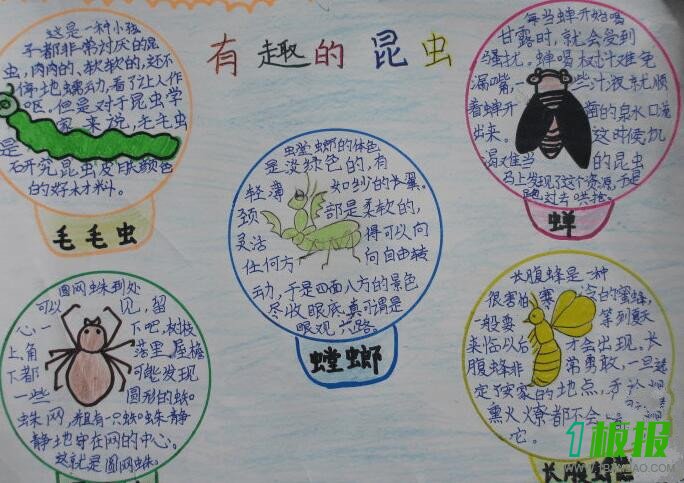 有趣的昆虫
这是一种小孩
子都非常讨厌的昆
虫，肉肉的、软软的，还不
停地蠕动，看了让人作
呕。但是对于昆虫学
家来说，毛毛虫
是
研究昆虫皮肤颜色
的好材料。
毛毛虫
每当蝉开始喝
甘露时，就会受到
骚扰。蝉喝树汁难免
漏嘴，些汁液就顺
着蝉开凿的泉水口溢
出来，这时候饥
渴难当的昆虫
马上发现了这个资源，于是
跑过去哄抢。
蝉
螳螂的体色
是淡绿色的，有
轻薄如纱的长翼。
颈部是柔软的，
灵活得可以向
任何方向自由转
动，于是四面八方的景色
尽收眼底，真可谓是
眼观六路。
螳螂
圆网蛛到处
可以见，留
心一下吧，树枝
上角落里，屋檐
下都可能发现
一些圆形的蛛
蛛网，并且有一只蜘蛛静
静地守在网的中心。
这就是圆网蛛。
长腹蜂是一种
很害怕寒冷的蜜蜂，
一般要等到夏天
来临以后才会出现。长
腹蜂非常勇敢，一旦选
定安家的地点，
熏火燎都不会
它。
长腹蜂
1板报